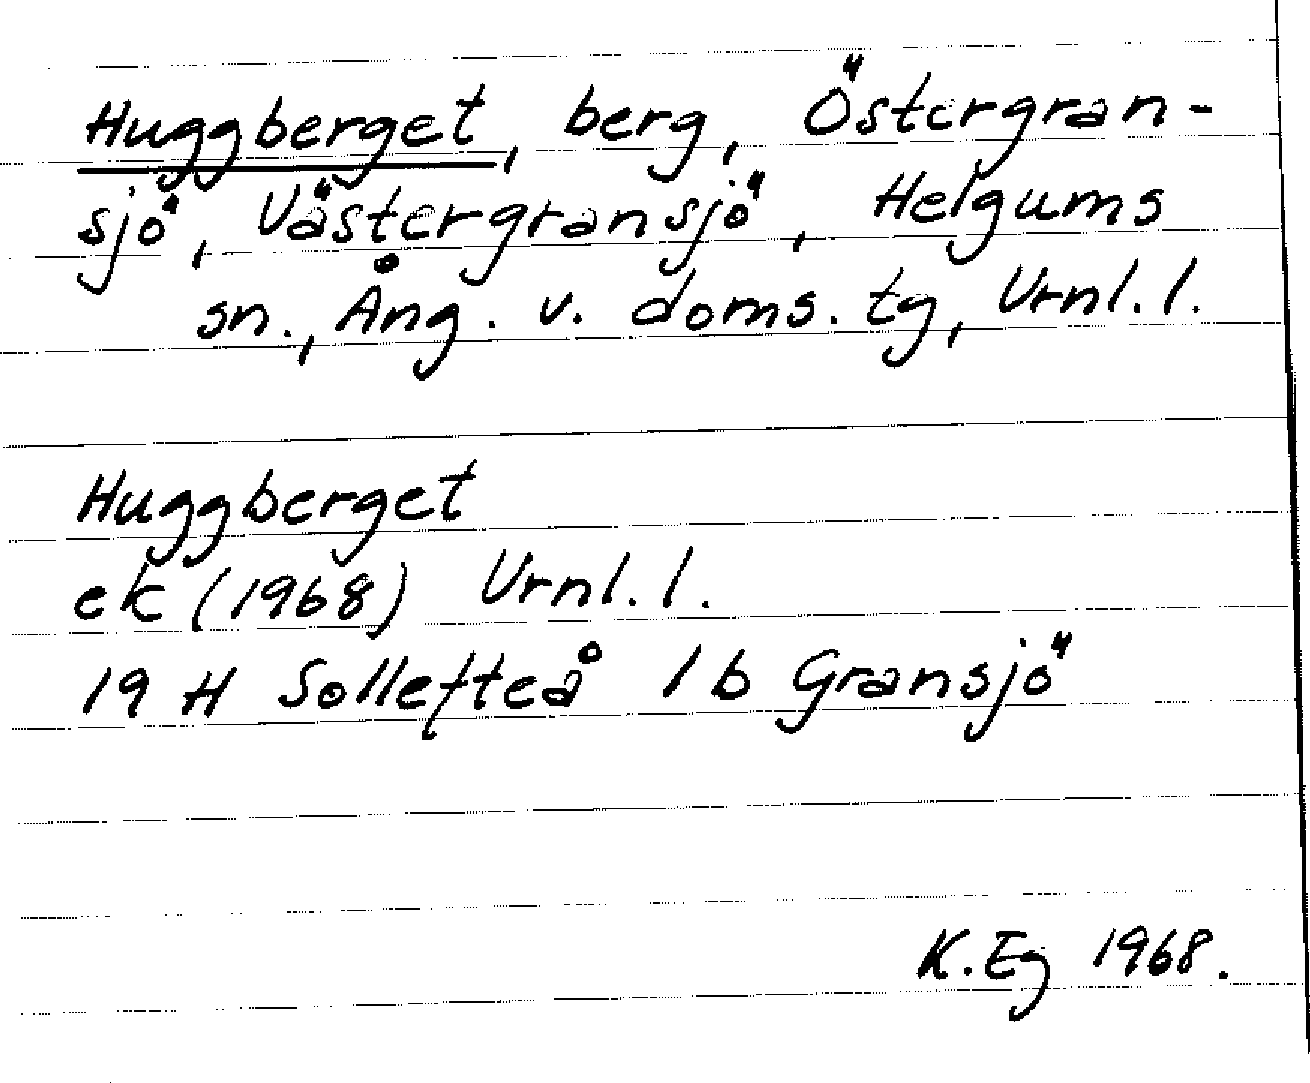 Huggberget, berg, Östergran-
sjö, Västergransjö, Helgums
sn., Ång. v. doms. tg, Vrnl. l.
Huggberget
ek (1968) Vrnl. l.
19 H Sollefteå 1 b Gransjö
K. Eg 1968.